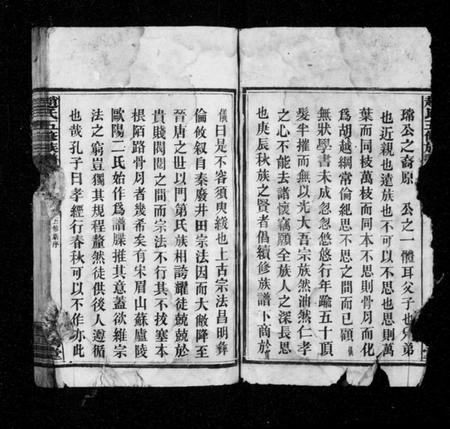 趙氏五修族譜
璿公之裔原 公之一體耳父子也兄弟
也近親也遠族也不可以不思也思則萬
葉而同枝萬枝而同本不思則骨月而化
爲胡越綱常倫紀思不思之間而已顧儀
無狀學書未成忽忽悠悠行年踰五十頂
髮半摧而無以光大吾宗族然油然仁孝
之心不能去諸懷竊願全族人之深長思
也庚辰秋族之賢者倡續修族譜卜商於
儀曰是不容須臾緩也上古宗法昌明彝
倫攸叙自秦廢井田宗法因而大敝降至
晉唐之世以門第氏族相誇耀徒兢兢於
貴賤閥閱之間而宗法不行其不找塞本
根陌路骨月者幾希矣有宋眉山蘇廬陵
歐陽二氏始作爲譜牒推其意蓋欲維宗
法之窮豈獨其規程釐然徒供後人遵循
也哉孔子曰孝經行春秋可以不作亦此
趙氏五修族譜